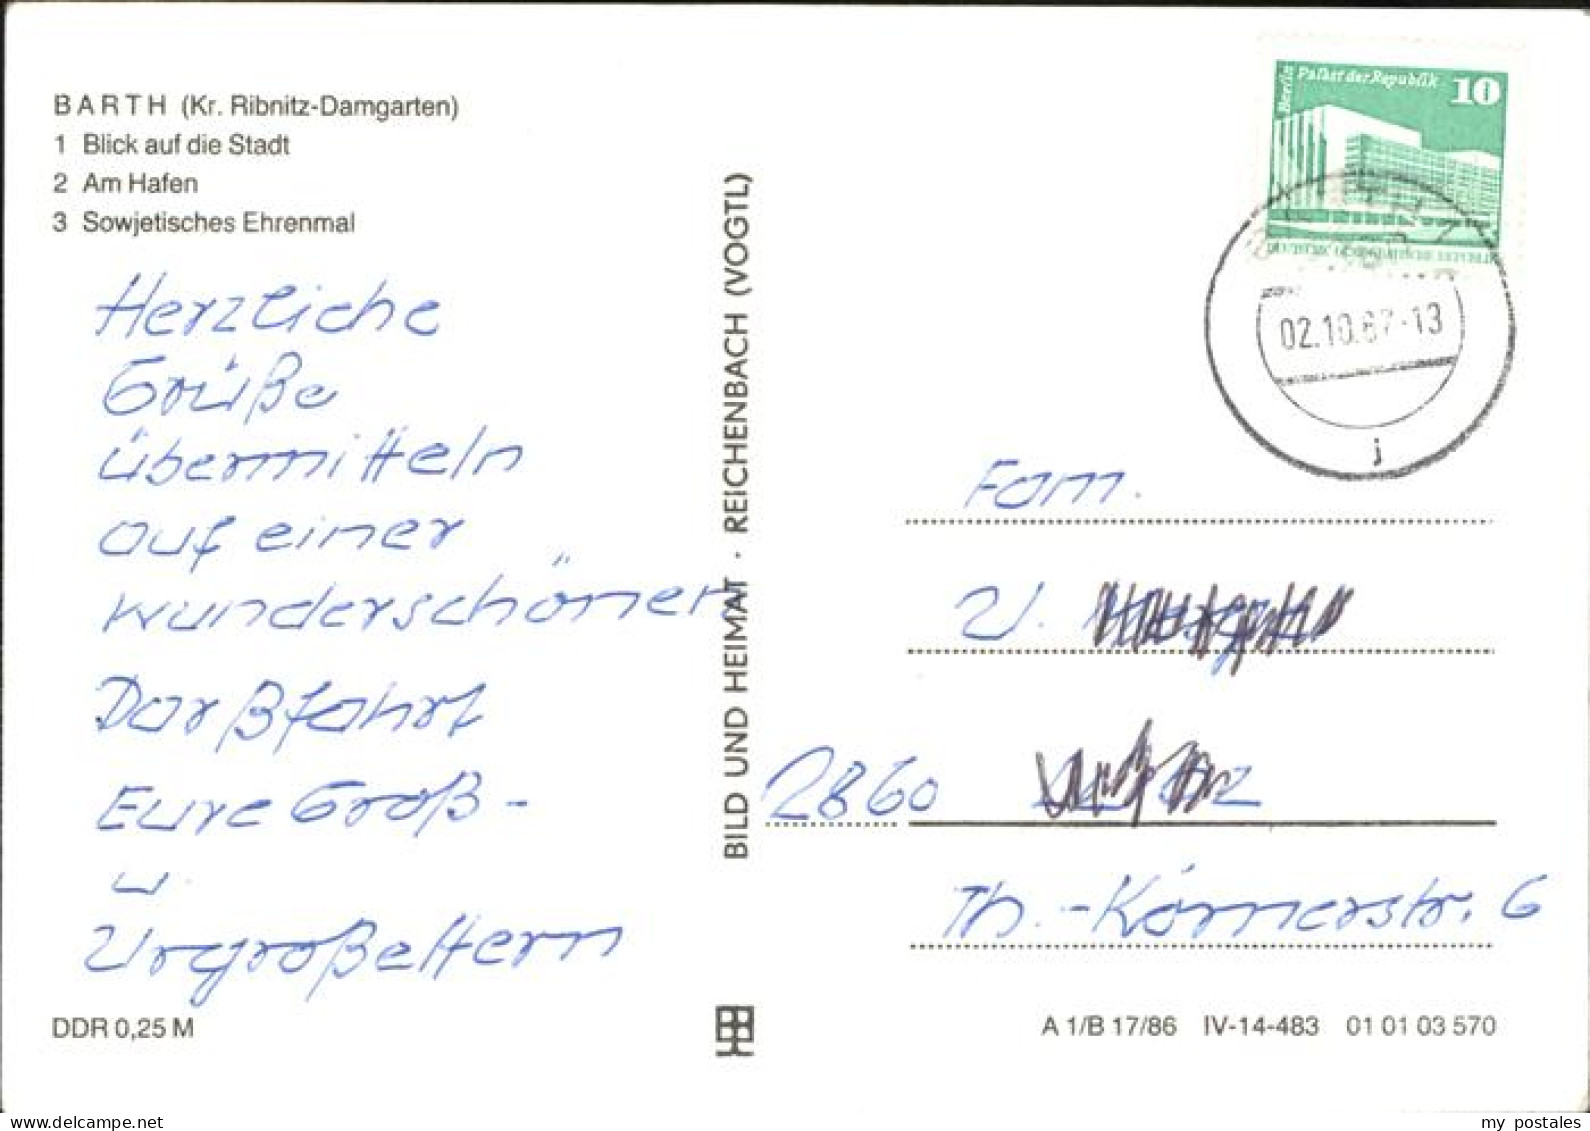 BARTH (Kr. Ribnitz-Damgarten)
1 Blick auf die Stadt
2 Am Hafen
3 Sowjetisches Ehrenmal
Herzliche
Grüße
übermitteln
auf einer
wunderschönen
Darßfahrt
Eure Groß-
u.
Urgroßeltern
DDR 0,25 M
BILD UND HEIMAT · REICHENBACH (VOGTL)
Berlin
Palast der Republik
10
02.10.87-13
j
Fam.
U.
2860
Th.-Körnerstr. 6
A 1/B 17/86 IV-14-483 01 01 03 570
my postales